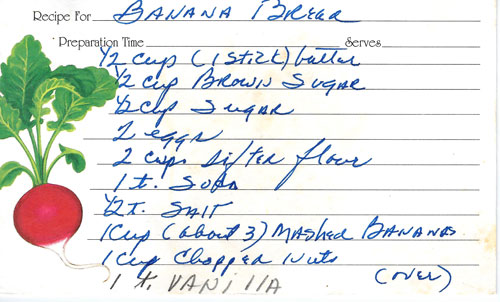 Recipe For BANANA BREAD
Preparation Time Serves
1/2 cup (1 stick) butter
1/2 cup BROWN SUGAR
1/2 cup SUGAR
2 eggs
2 cups sifted flour
1 t. SODA
1/2 t. SALT
1 Cup (about 3) MASHED BANANAS
1 Cup Chopped Nuts
(over)
1 t. VANILLA